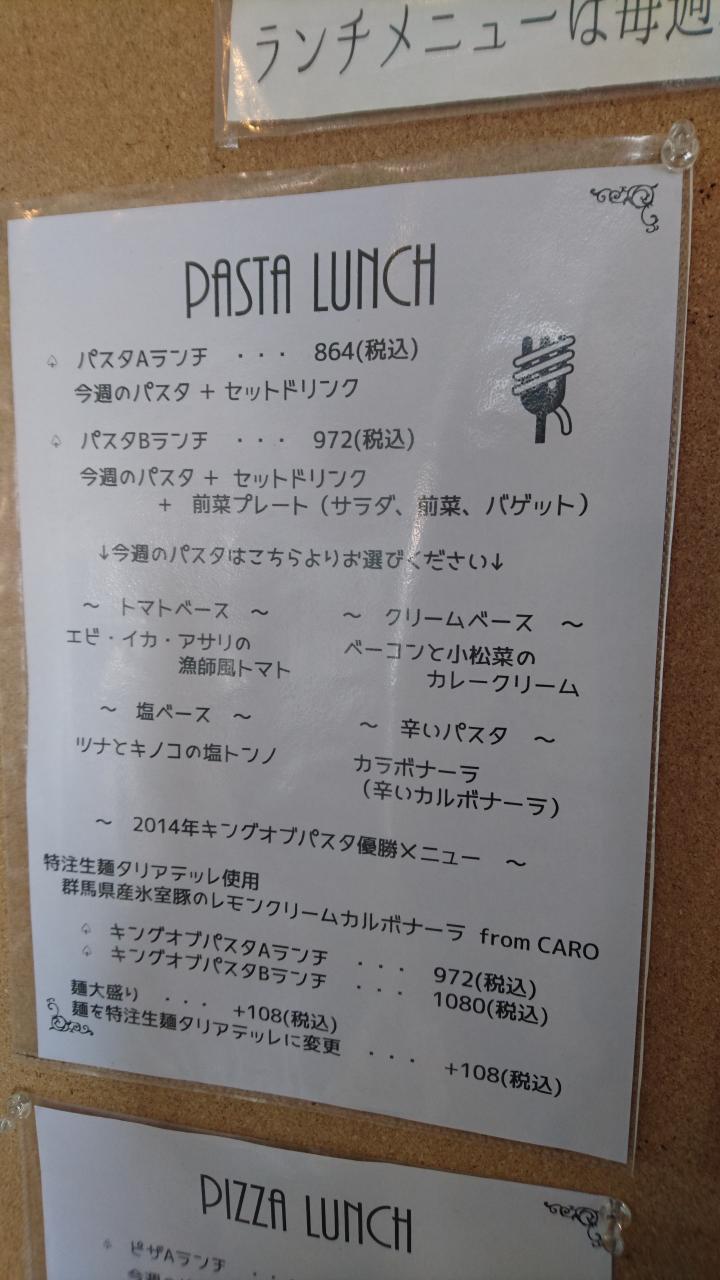 ランチメニューは毎週
PASTA LUNCH
♤ パスタAランチ ・・・ 864(税込)
今週のパスタ + セットドリンク
♤ パスタBランチ ・・・ 972(税込)
今週のパスタ + セットドリンク
+ 前菜プレート（サラダ、前菜、バゲット）
↓今週のパスタはこちらよりお選びください↓
～ トマトベース ～
エビ・イカ・アサリの
漁師風トマト
～ クリームベース ～
ベーコンと小松菜の
カレークリーム
～ 塩ベース ～
ツナとキノコの塩トンノ
～ 辛いパスタ ～
カラボナーラ
（辛いカルボナーラ）
～ 2014年キングオブパスタ優勝メニュー ～
特注生麺タリアテッレ使用
群馬県産氷室豚のレモンクリームカルボナーラ from CARO
♤ キングオブパスタAランチ ・・・ 972(税込)
♤ キングオブパスタBランチ ・・・ 1080(税込)
麺大盛り ・・・ +108(税込)
麺を特注生麺タリアテッレに変更 ・・・ +108(税込)
PIZZA LUNCH
♤ ピザAランチ ・・